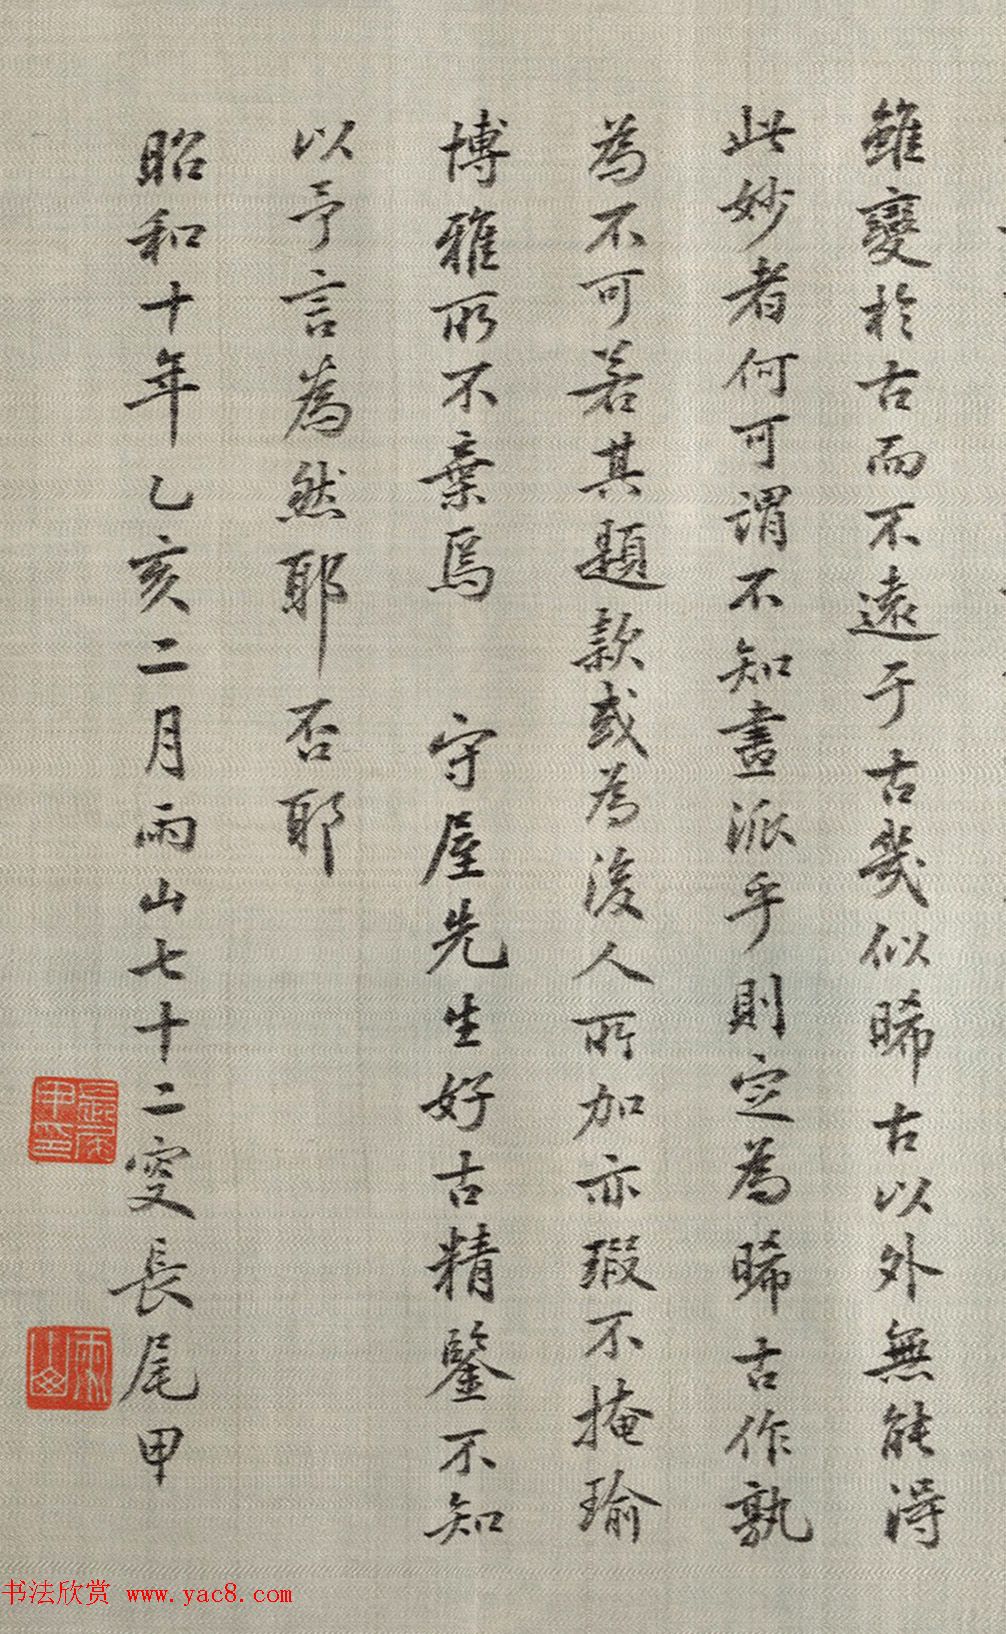 雖變於古而不遠于古幾似晞古以外無能得
此妙者何可謂不知畫派乎則定為晞古作孰
為不可若其題款或為後人所加亦瑕不掩瑜
博雅所不棄焉 守屋先生好古精鑒不知
以予言為然耶否耶
昭和十年乙亥二月雨山七十二叟長尾甲
長尾甲印
雨山
书法欣赏 www.yac8.com